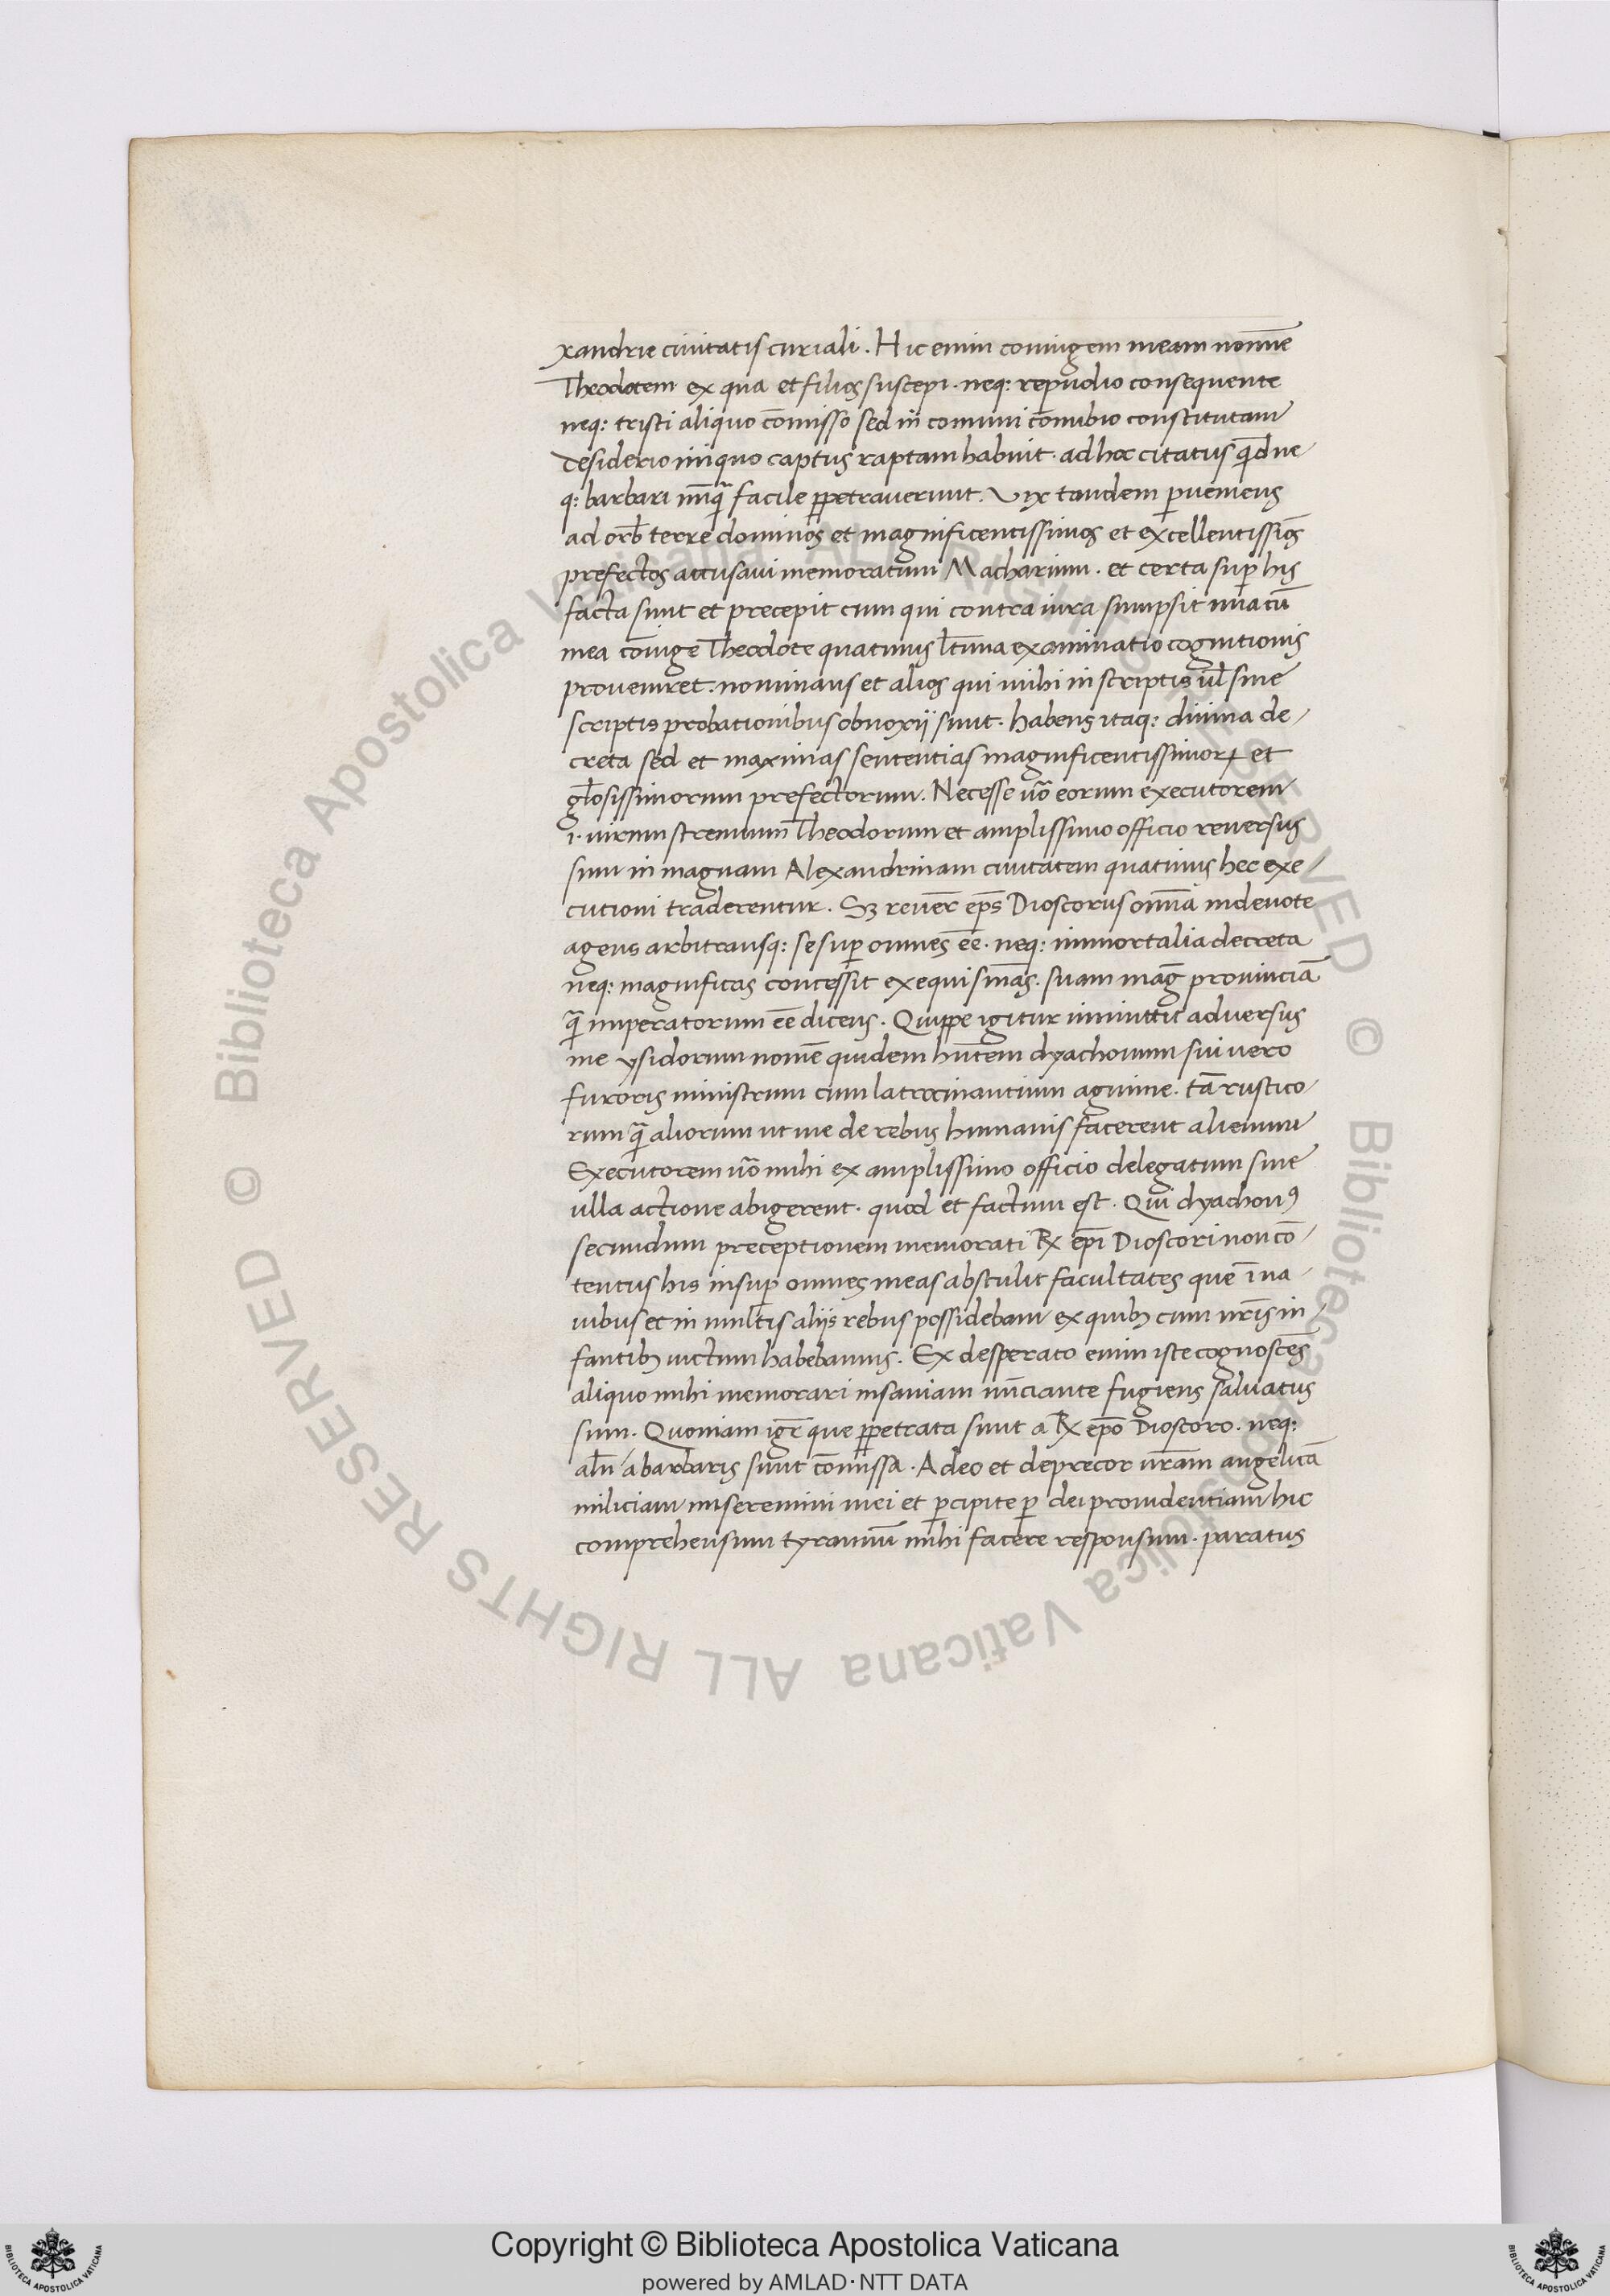 xandrie ciuitatis curiali. Hic enim coniugem meam nom̄ie
Theodotem ex qua et filios suscepi. neq: repudio consequente
neq: tristi aliquo cōmisso sed in comuni cōnubio constitutam
desiderio iniquo captus raptam habuit. ad hoc citatus qđ ne
q: barbari nūq̄ facile ꝑpetrauerunt. Vix tandem ꝑueniens
ad orb̄ terre dominos et magnificentissimos et excellentissīos
prefectos accusaui memoratum Macharium. et certa suꝑ his
facta sunt et precepit cum qui contra iura sumpsit una cū
mea cōiuge Theodote quatinus l̄tuna examinatio cognitionis
proueniret: nominans et alios qui mihi in scriptis ul̄ sine
scriptis probationibus obnoxij sunt. habens itaq: diuina de-
creta sed et maximas sententias magnificentissimoꝝ et
gl̄osissimorum prefectorum. Necesse uō eorum executorem
i. uirum strenuum Theodorum et amplissimo officio reuersus
sum in magnam Alexandrinam ciuitatem quatinus hec exe/
cutioni traderentur. Sꝫ reuer̄ ep̄s Dioscorus omīa indeuote
agens arbitransq: se suꝑ omnes ēē. neq: immortalia decreta
neq: magnificas concessit exequi sn̄ias. suam maḡ prouinciā
q̄ imperatorum ēē dicens. Quippe igitur inmittit aduersus
me ysidorum nomē quidem hn̄tem dyachonum sui uero
furoris ministrum cum latrocinantium agmine. tā rustico-
rum q̄ aliorum ut me de rebus humanis facerent alienum
Executorem uō mihi ex amplissimo officio delegatum sine
ulla actione abigerent. quod et factum est. Qui dyachonꝰ
secundum preceptionem memorati Rx ep̄i Dioscori non cō-
tentus his insuꝑ omnes meas abstulit facultates que ī na-
uibus et in multis aliis rebus possidebam ex quibꝫ cum nr̄is in/
fantibꝫ uictum habebamus. Ex desperato enim iste cognoscēs
aliquo mihi memorari insaniam nūciante fugiens saluatus
sum. Quoniam igr̄ que ꝑpetrata sunt a Rx ep̄o Dioscoro. neq:
al̄n a barbaris sunt cōmissa. Adeo et deprecor ur̄am angelicā
miliciam miseremini mei et ꝑcipite ꝑ dei prouidentiam hic
comprehensum tyrannū mihi facere responsum. paratus
Copyright © Biblioteca Apostolica Vaticana
powered by AMLAD·NTT DATA
© Biblioteca Apostolica Vaticana ALL RIGHTS RESERVED
© Biblioteca Apostolica Vaticana ALL RIGHTS RESERVED
BIBLIOTECA APOSTOLICA VATICANA
BIBLIOTECA APOSTOLICA VATICANA